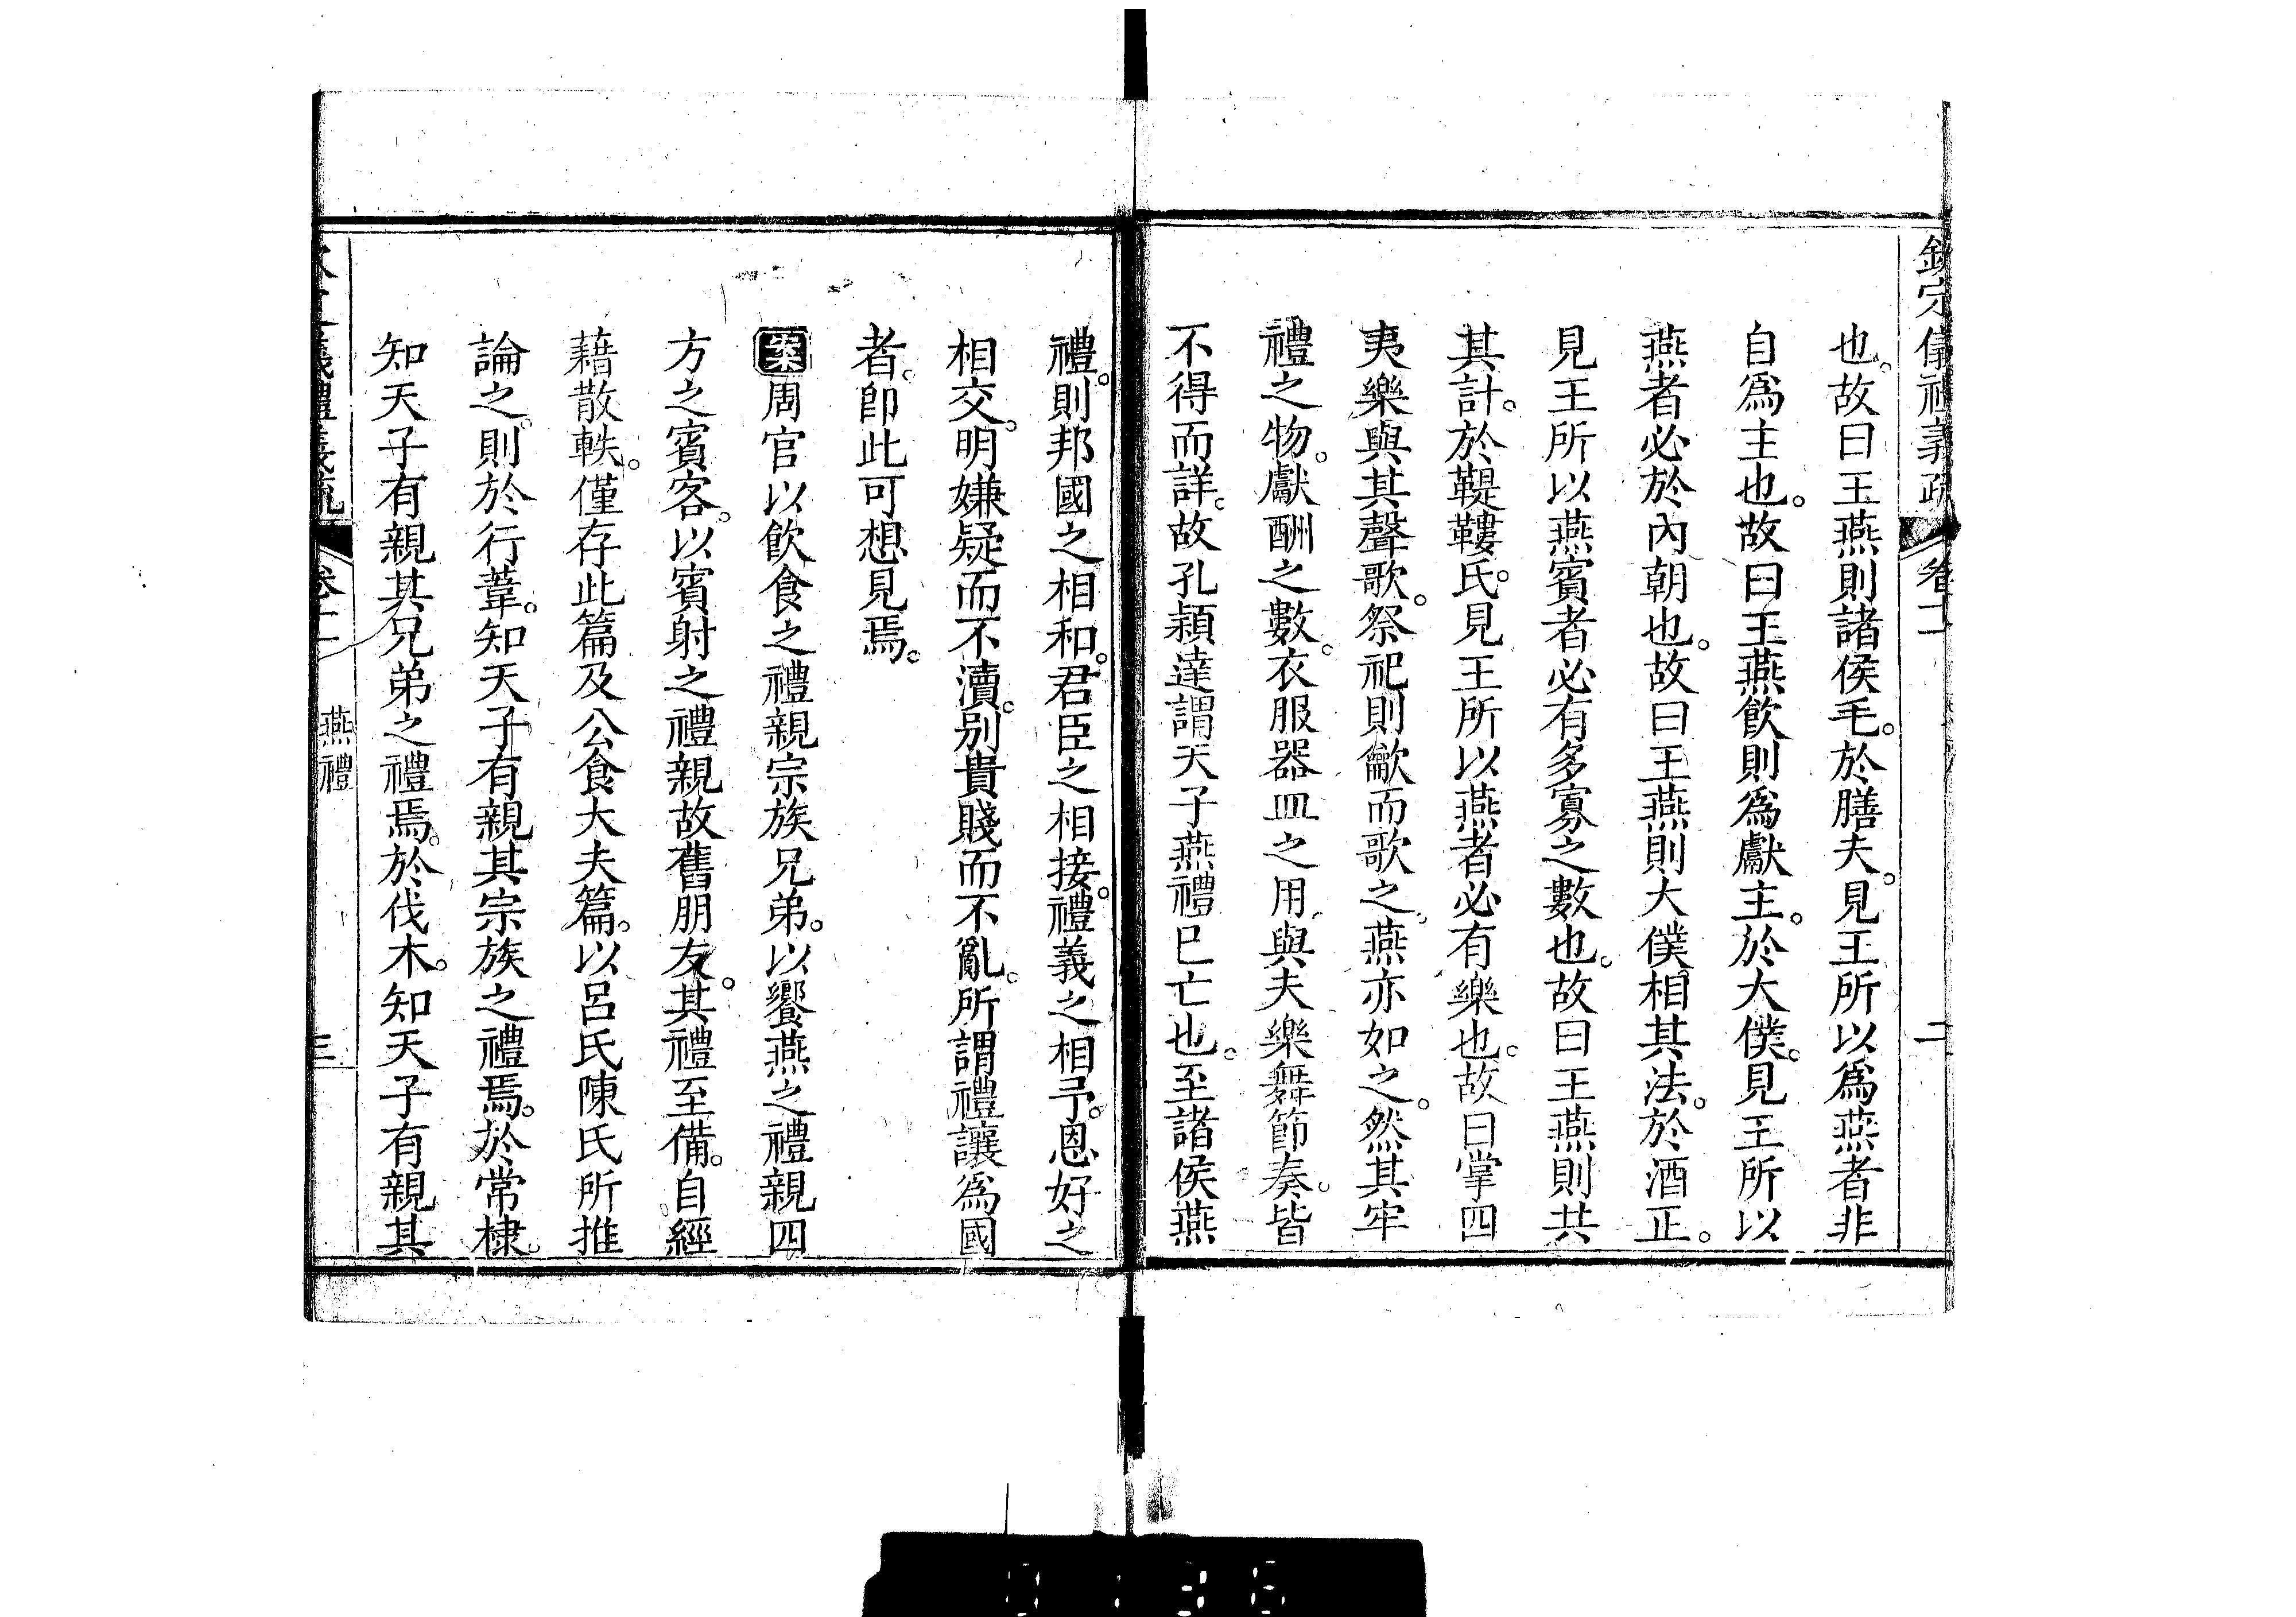 欽定儀禮義疏 卷十一 二
也。故曰王燕則諸侯毛。於膳夫。見王所以爲燕者非
自爲主也。故曰王燕飮則爲獻主。於大僕。見王所以
燕者必於內朝也。故曰王燕則大僕相其法。於酒正。
見王所以燕賓者必有多寡之數也。故曰王燕則共
其計。於鞮鞻氏。見王所以燕者必有樂也。故曰掌四
夷樂與其聲歌。祭祀則龡而歌之。燕亦如之。然其牢
禮之物。獻酬之數。衣服器皿之用。與夫樂舞節奏。皆
不得而詳。故孔穎達謂天子燕禮已亡也。至諸侯燕
禮。則邦國之相和。君臣之相接。禮義之相予。恩好之
相交。明嫌疑而不瀆。别貴賤而不亂。所謂禮讓爲國
者。卽此可想見焉。
案周官以飮食之禮親宗族兄弟。以饗燕之禮親四
方之賓客。以賓射之禮親故舊朋友。其禮至備。自經
藉散軼。僅存此篇及公食大夫篇。以呂氏陳氏所推
論之。則於行葦。知天子有親其宗族之禮焉。於常棣。
知天子有親其兄弟之禮焉。於伐木。知天子有親其
欽定儀禮義疏 卷十一 燕禮 三